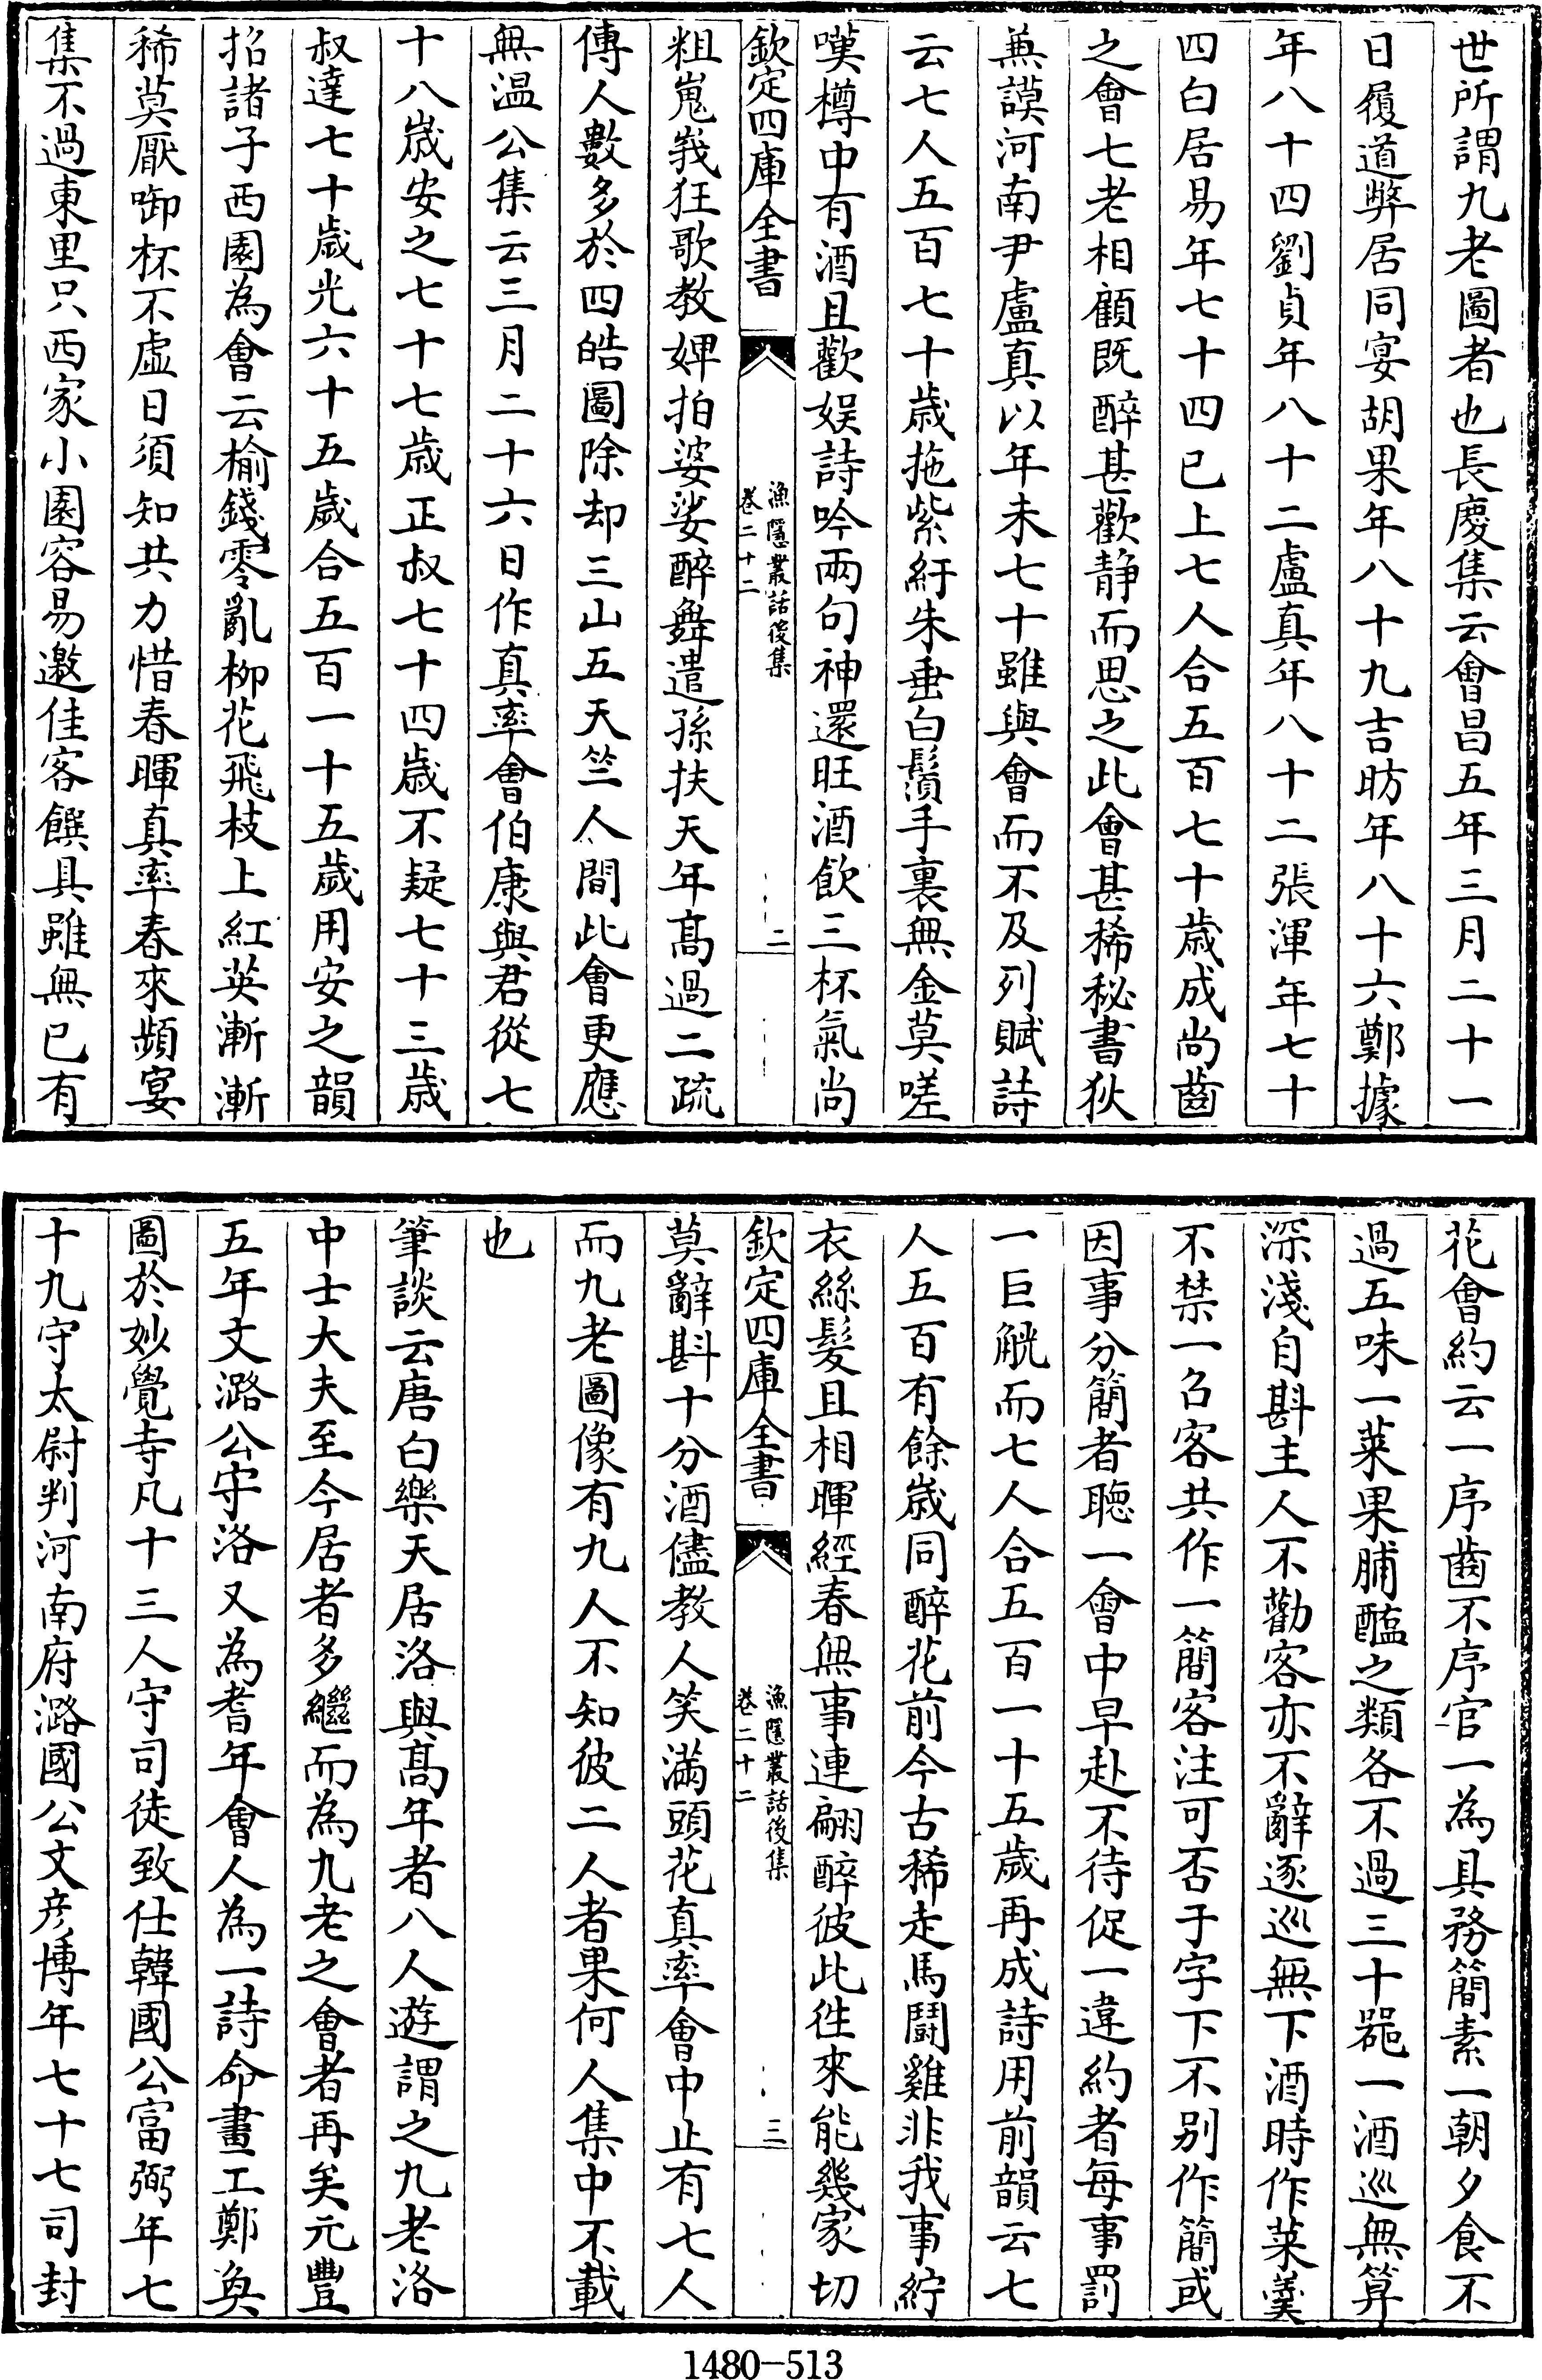 世所謂九老圖者也長慶集云會昌五年三月二十一
日履道弊居同宴胡果年八十九吉昉年八十六鄭據
年八十四劉貞年八十二盧真年八十二張渾年七十
四白居易年七十四已上七人合五百七十歲成尚齒
之會七老相顧既醉甚歡静而思之此會甚稀秘書狄
兼謨河南尹盧真以年未七十雖與會而不及列賦詩
云七人五百七十歲拖紫紆朱垂白鬚手裏無金莫嗟
嘆樽中有酒且歡娱詩吟兩句神還旺酒飲三杯氣尚
欽定四庫全書
漁隱叢話後集
卷二十二
二
粗嵬峩狂歌教婢拍婆娑醉舞遣孫扶天年髙過二疏
傅人數多於四皓圖除却三山五天竺人間此會更應
無温公集云三月二十六日作真率會伯康與君從七
十八歲安之七十七歲正叔七十四歲不疑七十三歲
叔達七十歲光六十五歲合五百一十五歲用安之韻
招諸子西園為會云榆錢零亂柳花飛枝上紅英漸漸
稀莫厭啣杯不虚日須知共力惜春暉真率春來頻宴
集不過東里只西家小園容易邀佳客饌具雖無已有
花會約云一序齒不序官一為具務簡素一朝夕食不
過五味一菜果脯醢之類各不過三十器一酒巡無算
深淺自斟主人不勸客亦不辭逐巡無下酒時作菜羹
不禁一召客共作一簡客注可否于字下不别作簡或
因事分簡者聴一會中早赴不待促一違約者每事罰
一巨觥而七人合五百一十五歲再成詩用前韻云七
人五百有餘歲同醉花前今古稀走馬鬬雞非我事紵
衣絲髮且相暉經春無事連翩醉彼此徃來能幾家切
欽定四庫全書
漁隱叢話後集
卷二十二
三
莫辭斟十分酒儘教人笑滿頭花真率會中止有七人
而九老圖像有九人不知彼二人者果何人集中不載
也
筆談云唐白樂天居洛與髙年者八人遊謂之九老洛
中士大夫至今居者多繼而為九老之會者再矣元豐
五年文潞公守洛又為耆年會人為一詩命畫工鄭奐
圖於妙覺寺凡十三人守司徒致仕韓國公富弼年七
十九守太尉判河南府潞國公文彦博年七十七司封
1480-513